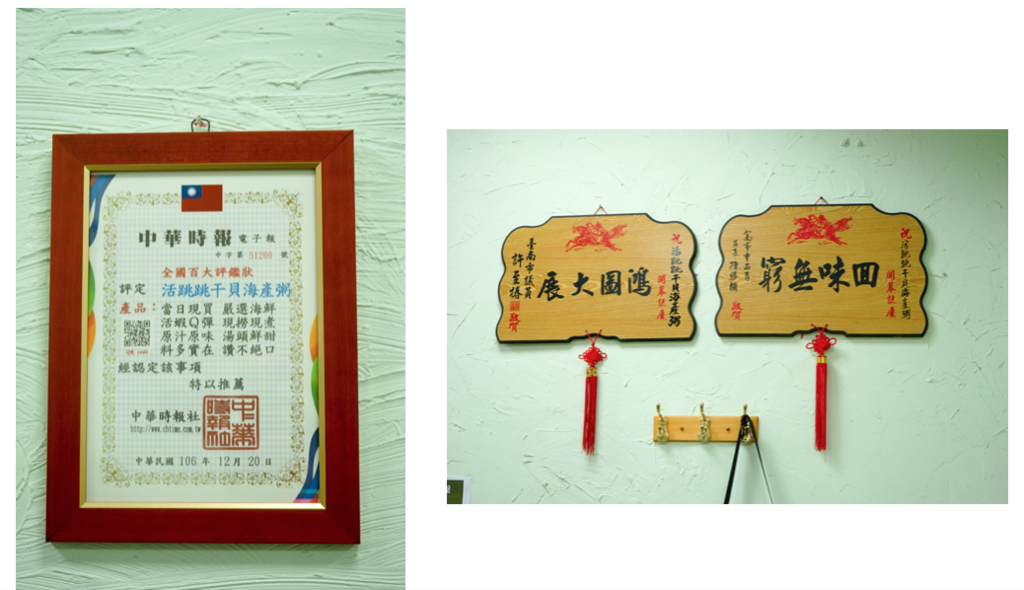 中華時報 電子報
中字第 51200 號
全國百大評鑑狀
評定 活跳跳干貝海產粥
產品：當日現買 嚴選海鮮
活蝦Q彈 現撈現煮
原汁原味 湯頭鮮甜
料多實在 讚不絕口
經認定該事項
特以推薦
中華時報社
http://www.chtime.com.tw
中華時報社
中華民國 106 年 12 月 20 日
祝 活跳跳干貝海產粥
開幕誌慶
鴻圖大展
臺南市議員
許至椿 敬賀
祝 活跳跳干貝海產粥
開幕誌慶
回味無窮
敬賀